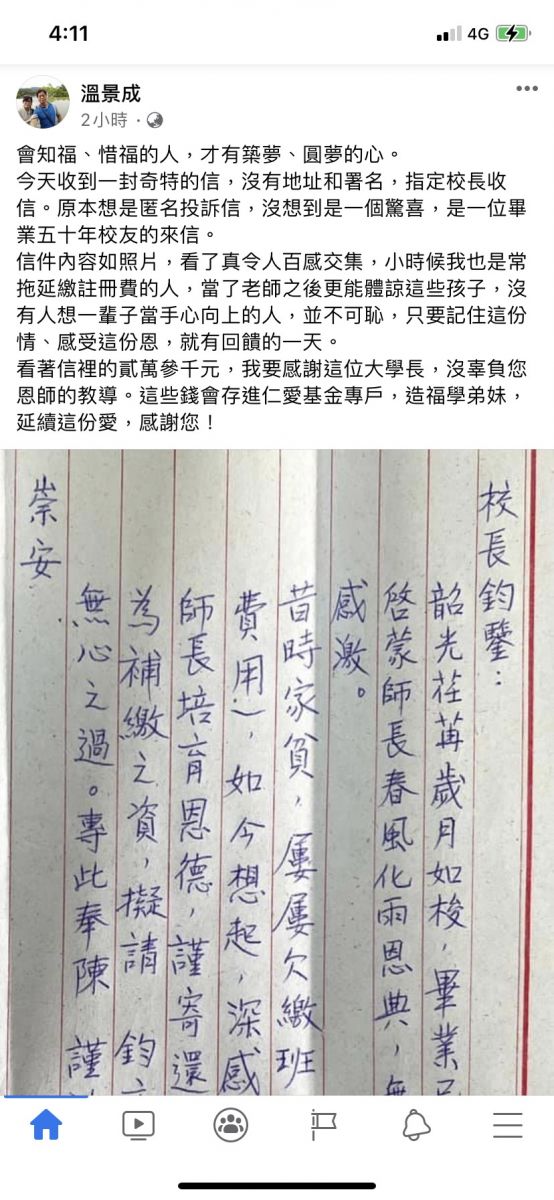 4:11
4G
溫景成
2小時·
會知福、惜福的人，才有築夢、圓夢的心。
今天收到一封奇特的信，沒有地址和署名，指定校長收
信。原本想是匿名投訴信，沒想到是一個驚喜，是一位畢
業五十年校友的來信。
信件內容如照片，看了真令人百感交集，小時候我也是常
拖延繳註冊費的人，當了老師之後更能體諒這些孩子，沒
有人想一輩子當手心向上的人，並不可恥，只要記住這份
情、感受這份恩，就有回饋的一天。
看著信裡的貳萬參千元，我要感謝這位大學長，沒辜負您
恩師的教導。這些錢會存進仁愛基金專戶，造福學弟妹，
延續這份愛，感謝您！
校長鈞鑒：
韶光荏苒歲月如梭，畢業
啓蒙師長春風化雨恩典，
感激。
昔時家貧，屢屢欠繳班
費用），如今想起，深感
師長培育恩德，謹寄還
為補繳之資，擬請 鈞
無心之過。專此奉陳 謹
崇安